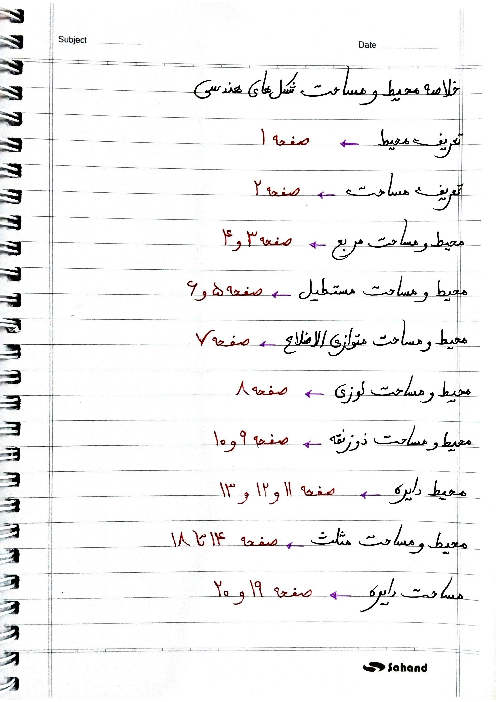 Subject
Date
خلاصه محیط و مساحت شکل‌های هندسی
تعریف محیط ← صفحه ۱
تعریف مساحت ← صفحه ۲
محیط و مساحت مربع ← صفحه ۳ و ۴
محیط و مساحت مستطیل ← صفحه ۵ و ۶
محیط و مساحت متوازی الاضلاع ← صفحه ۷
محیط و مساحت لوزی ← صفحه ۸
محیط و مساحت ذوزنقه ← صفحه ۹ و ۱۰
محیط دایره ← صفحه ۱۱ و ۱۲ و ۱۳
محیط و مساحت مثلث ← صفحه ۱۴ تا ۱۸
مساحت دایره ← صفحه ۱۹ و ۲۰
Sahand